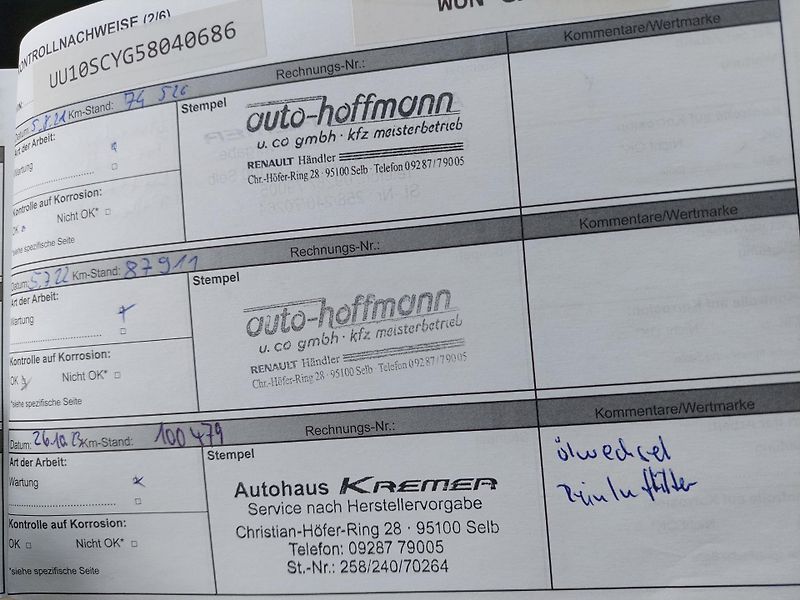 KONTROLLNACHWEISE (2/6)
UU10SCYG58040686
Rechnungs-Nr.:
Kommentare/Wertmarke
Datum: 5.8.21 Km-Stand: 74 526
Stempel
Art der Arbeit:
Wartung
Kontrolle auf Korrosion:
OK Nicht OK*
*siehe spezifische Seite
auto-hoffmann
u. co gmbh · kfz meisterbetrieb
RENAULT Händler
Chr.-Höfer-Ring 28 · 95100 Selb · Telefon 09287/79005
Rechnungs-Nr.:
Kommentare/Wertmarke
Datum: 5.7.22 Km-Stand: 87911
Stempel
Art der Arbeit:
Wartung
Kontrolle auf Korrosion:
OK Nicht OK*
*siehe spezifische Seite
auto-hoffmann
u. co gmbh · kfz meisterbetrieb
RENAULT Händler
Chr.-Höfer-Ring 28 · 95100 Selb Telefon 09287/79005
Rechnungs-Nr.:
Kommentare/Wertmarke
Datum: 26.10.23 Km-Stand: 100479
Stempel
Art der Arbeit:
Wartung
Kontrolle auf Korrosion:
OK Nicht OK*
*siehe spezifische Seite
Autohaus KREMER
Service nach Herstellervorgabe
Christian-Höfer-Ring 28 · 95100 Selb
Telefon: 09287 79005
St.-Nr.: 258/240/70264
ölwechsel